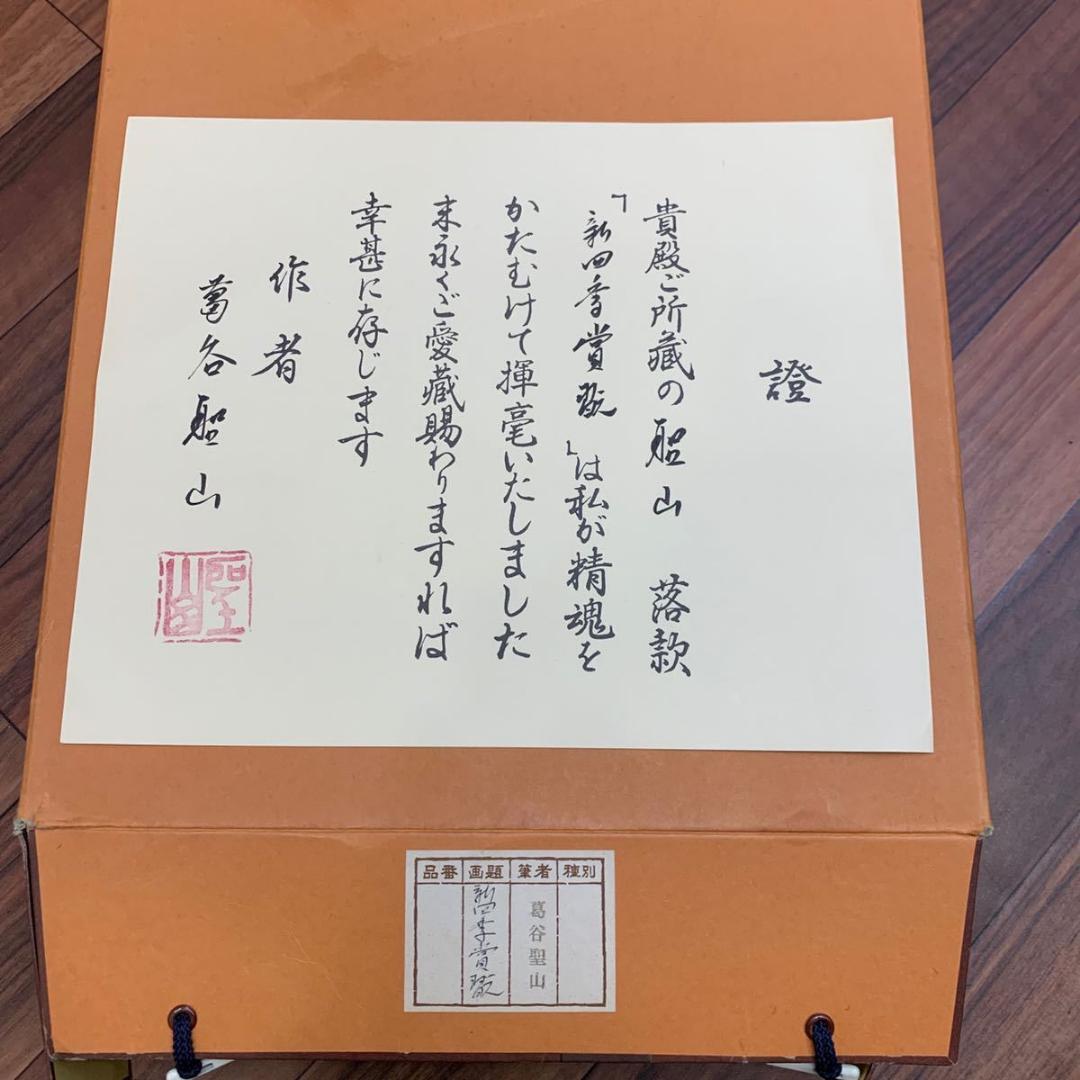 證
貴殿ご所蔵の 聖山 落款
「新四季賞翫」は私が精魂を
かたむけて揮毫いたしました
末永くご愛蔵賜わりますれば
幸甚に存じます
作者
葛谷聖山
種別
筆者
葛谷聖山
画題
新四季賞翫
品番